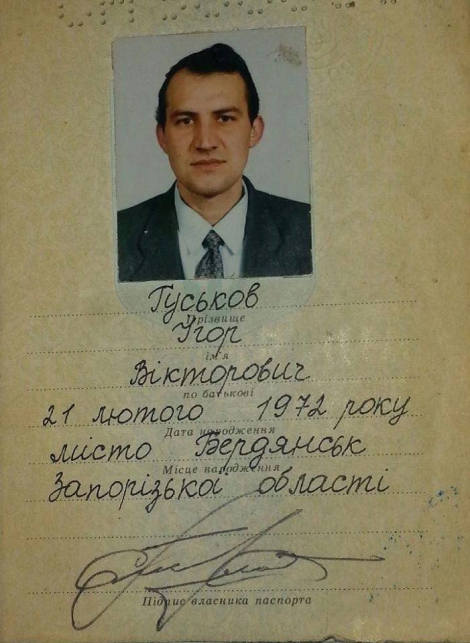 Гуськов
Прізвище
Ігор
ім'я
Вікторович
по батькові
21 лютого 1972 року
Дата народження
місто Бердянськ
Місце народження
Запорізької області
Підпис власника паспорта